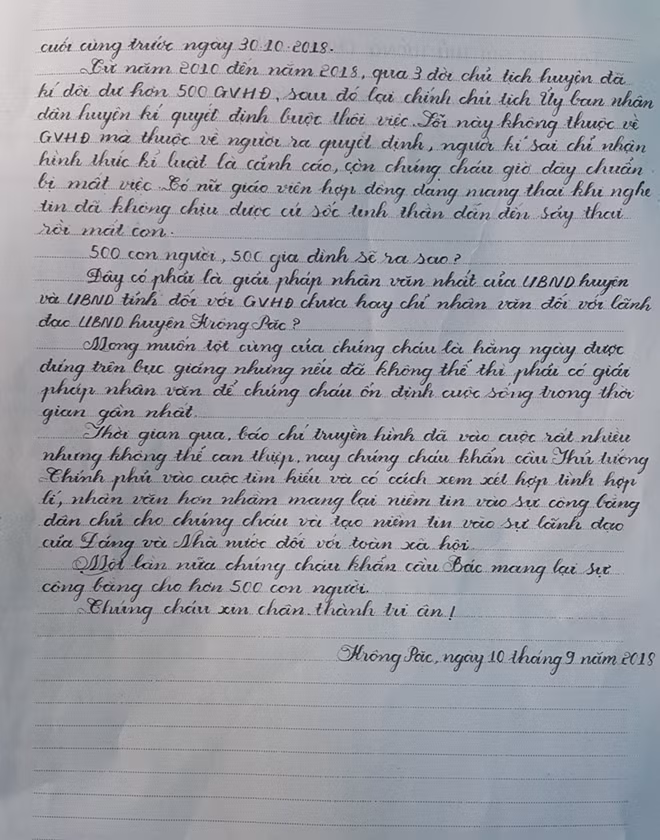 cuối cùng trước ngày 30.10.2018.
Từ năm 2010 đến năm 2018, qua 3 đời chủ tịch huyện đã
kí dôi dư hơn 500 GVHĐ, sau đó lại chính chủ tịch Ủy ban nhân
dân huyện kí quyết định buộc thôi việc. Lỗi này không thuộc về
GVHĐ mà thuộc về người ra quyết định, người kí sai chỉ nhận
hình thức kỉ luật là cảnh cáo, còn chúng cháu giờ đây chuẩn
bị mất việc. Có nữ giáo viên hợp đồng đang mang thai khi nghe
tin đã không chịu được cú sốc tinh thần dẫn đến sảy thai
rồi mất con.
500 con người, 500 gia đình sẽ ra sao?
Đây có phải là giải pháp nhân văn nhất của UBND huyện
và UBND tỉnh đối với GVHĐ chưa hay chỉ nhân văn đối với lãnh
đạo UBND huyện Krông Pắc?
Mong muốn tột cùng của chúng cháu là hằng ngày được
đứng trên bục giảng nhưng nếu đã không thể thì phải có giải
pháp nhân văn để chúng cháu ổn định cuộc sống trong thời
gian gần nhất.
Thời gian qua, báo chí truyền hình đã vào cuộc rất nhiều
nhưng không thể can thiệp, nay chúng cháu khẩn cầu Thủ tướng
Chính phủ vào cuộc tìm hiểu và có cách xem xét hợp tình hợp
lí, nhân văn hơn nhằm mang lại niềm tin vào sự công bằng
dân chủ cho chúng cháu và tạo niềm tin vào sự lãnh đạo
của Đảng và Nhà nước đối với toàn xã hội.
Một lần nữa chúng cháu khẩn cầu Bác mang lại sự
công bằng cho hơn 500 con người.
Chúng cháu xin chân thành tri ân!
Krông Pắc, ngày 10 tháng 9 năm 2018